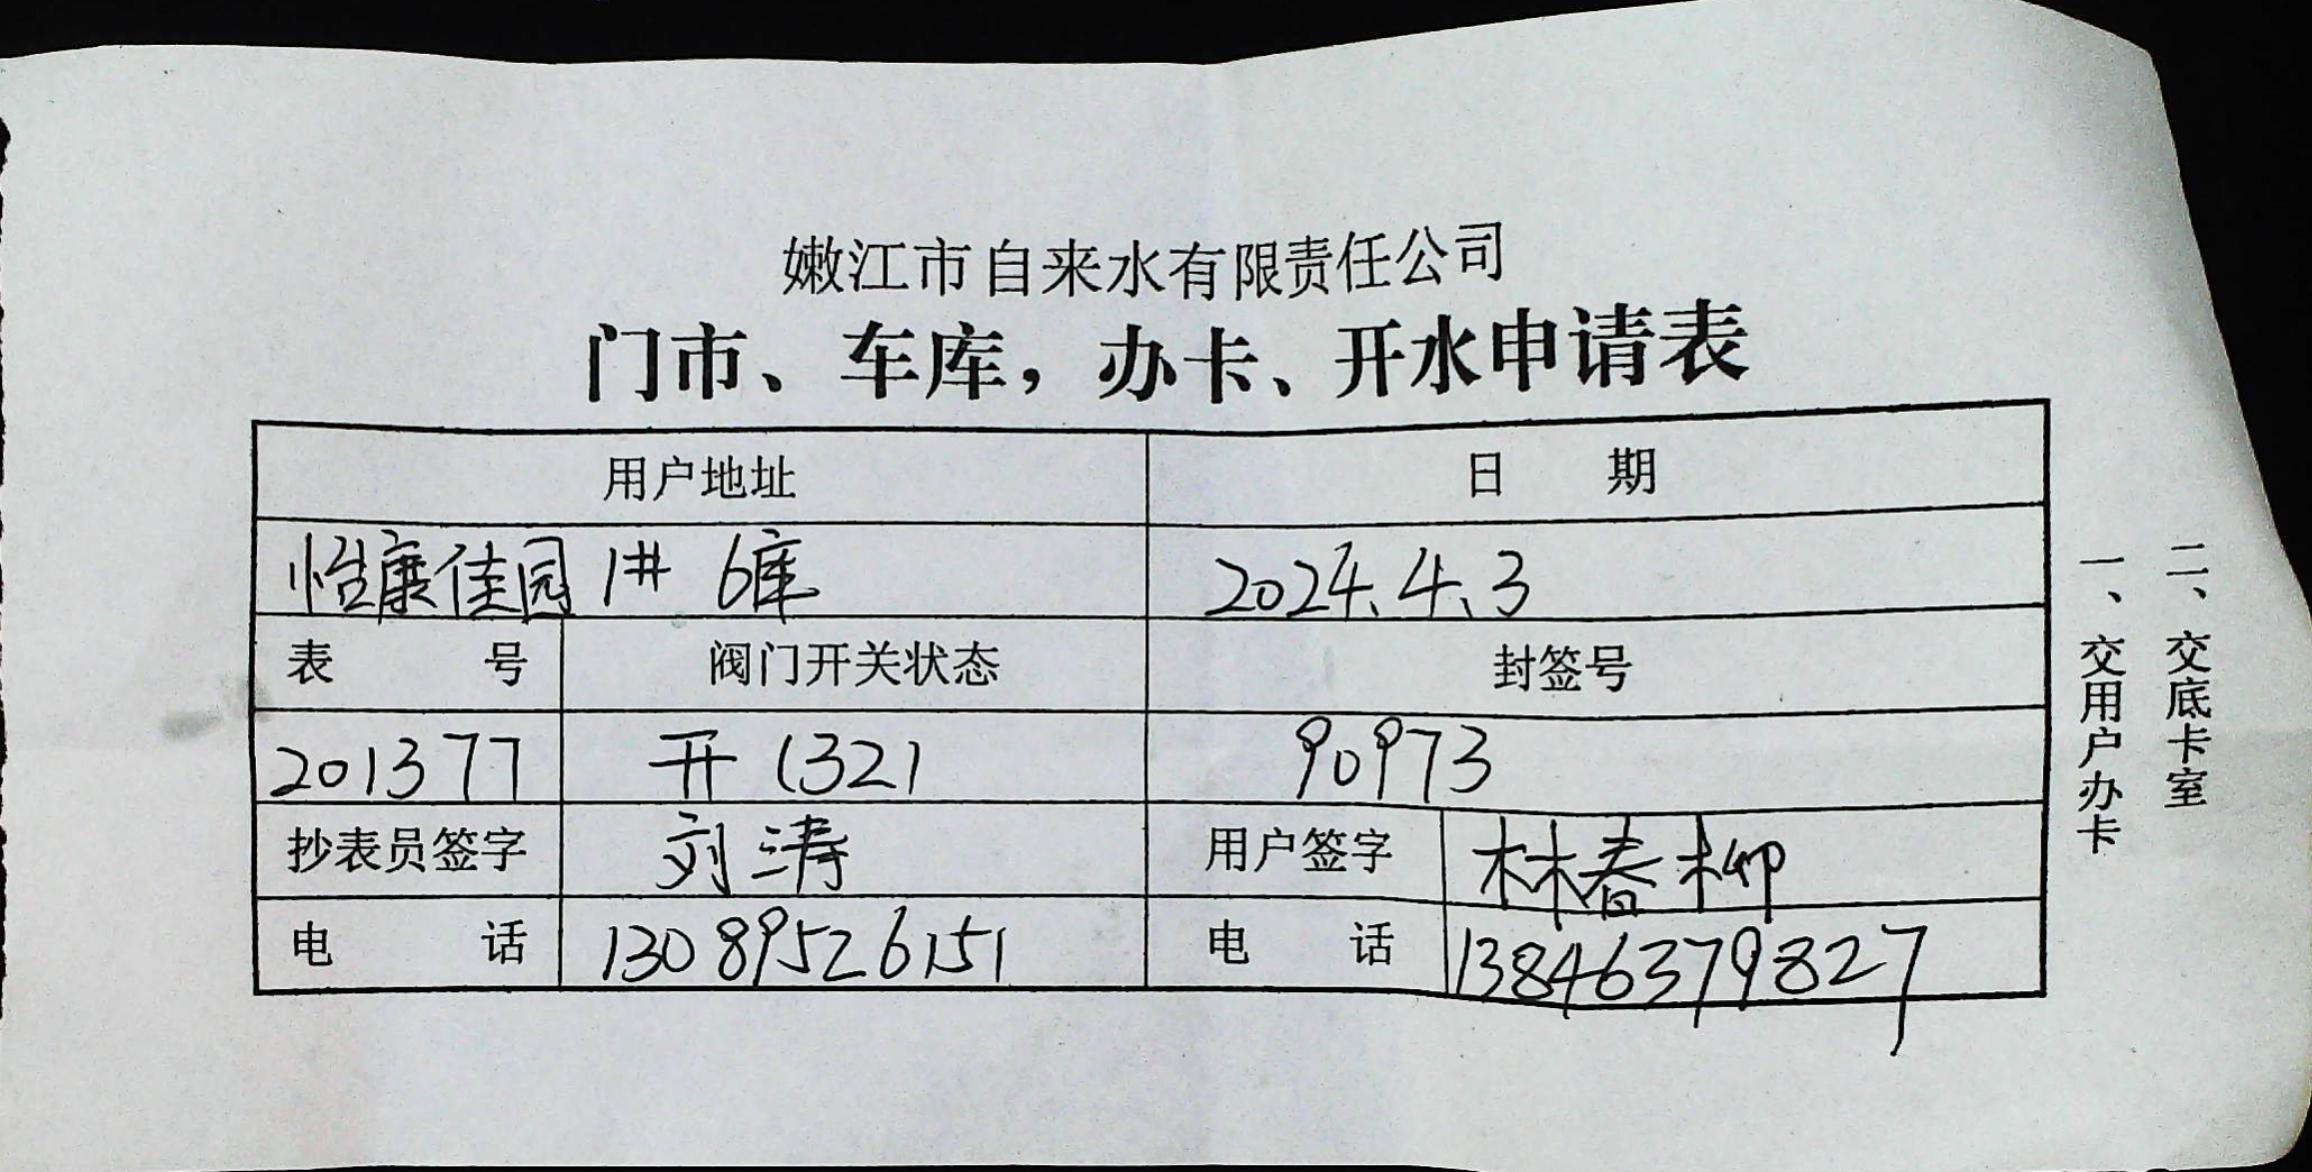 嫩江市自来水有限责任公司
门市、车库，办卡、开水申请表
用户地址 日 期
怡康佳园 1# 6库 2024.4.3
表 号 阀门开关状态 封签号
201377 开 1321 90973
抄表员签字 刘涛 用户签字 林春柳
电 话 13089526151 电 话 13846379827
一、交用户办卡
二、交底卡室